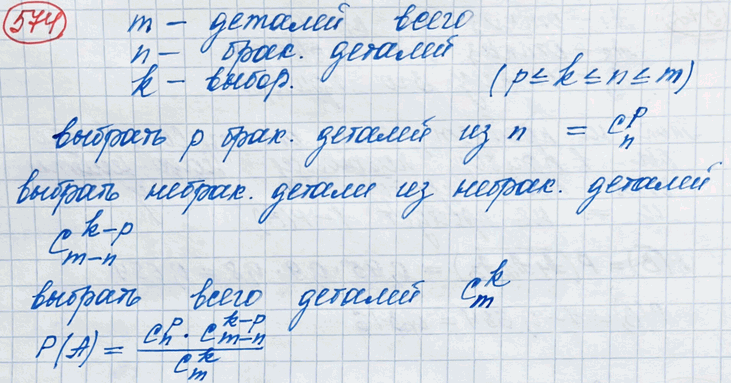 574
m – деталей всего
n – брак. деталей
k – выбор. (p ≤ k ≤ n ≤ m)
выбрать p брак. деталей из n = C_n^p
выбрать небрак. детали из небрак. деталей
C_{m-n}^{k-p}
выбрать всего деталей C_m^k
P(A) = \frac{C_n^p · C_{m-n}^{k-p}}{C_m^k}